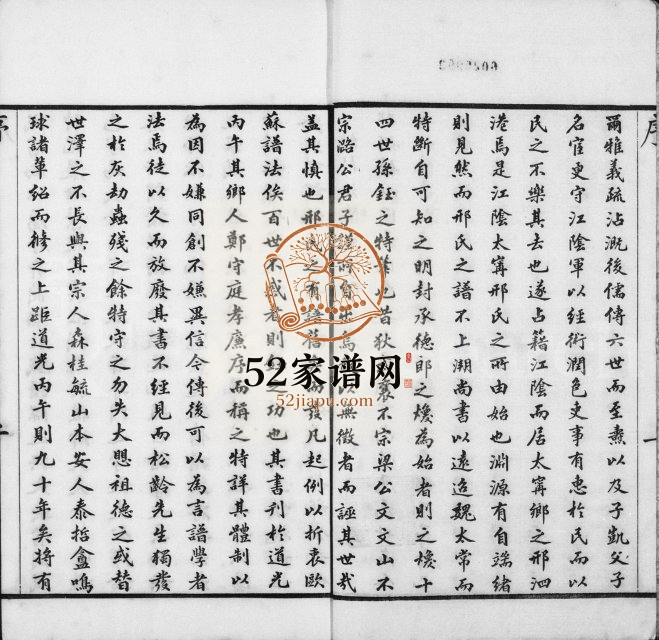 爾雅義疏沾溉後儒傳六世而至燾以及子凱父子
名宦更守江陰軍以經術潤色吏事有惠於民而以
民之不樂其去也遂占籍江陰而居太寗鄉之邢泗
港焉是江陰太寗邢氏之所由始也淵源有自端緒
則見然而邢氏之譜不上溯尚書以遠迨魏太常而
特斷自可知之明封承德郎之㷟為始者則之㷟十
四世孫鈺之特 也昔狄 裒不宗梁公文文山不
宗潞公君子 無徵者而誣其世哉
蓋其慎也邢氏之有譜舊 而發凡起例以折衷歐
蘇譜法俟百世不惑者則 之功也其書刊於道光
丙午其鄉人鄭守庭孝廉序而稱之特詳其體制以
為因不嫌同創不嫌異信今傳後可以為言譜學者
法焉徒以久而放廢其書不經見而松齡先生獨發
之於灰劫蟲殘之餘特守之勿失大思祖德之或替
世澤之不長與其宗人森桂毓山本安人泰拾盒鳴
球諸草紹而修之上距道光丙午則九十年矣將有
序
一
52家谱网
52jiapu.com